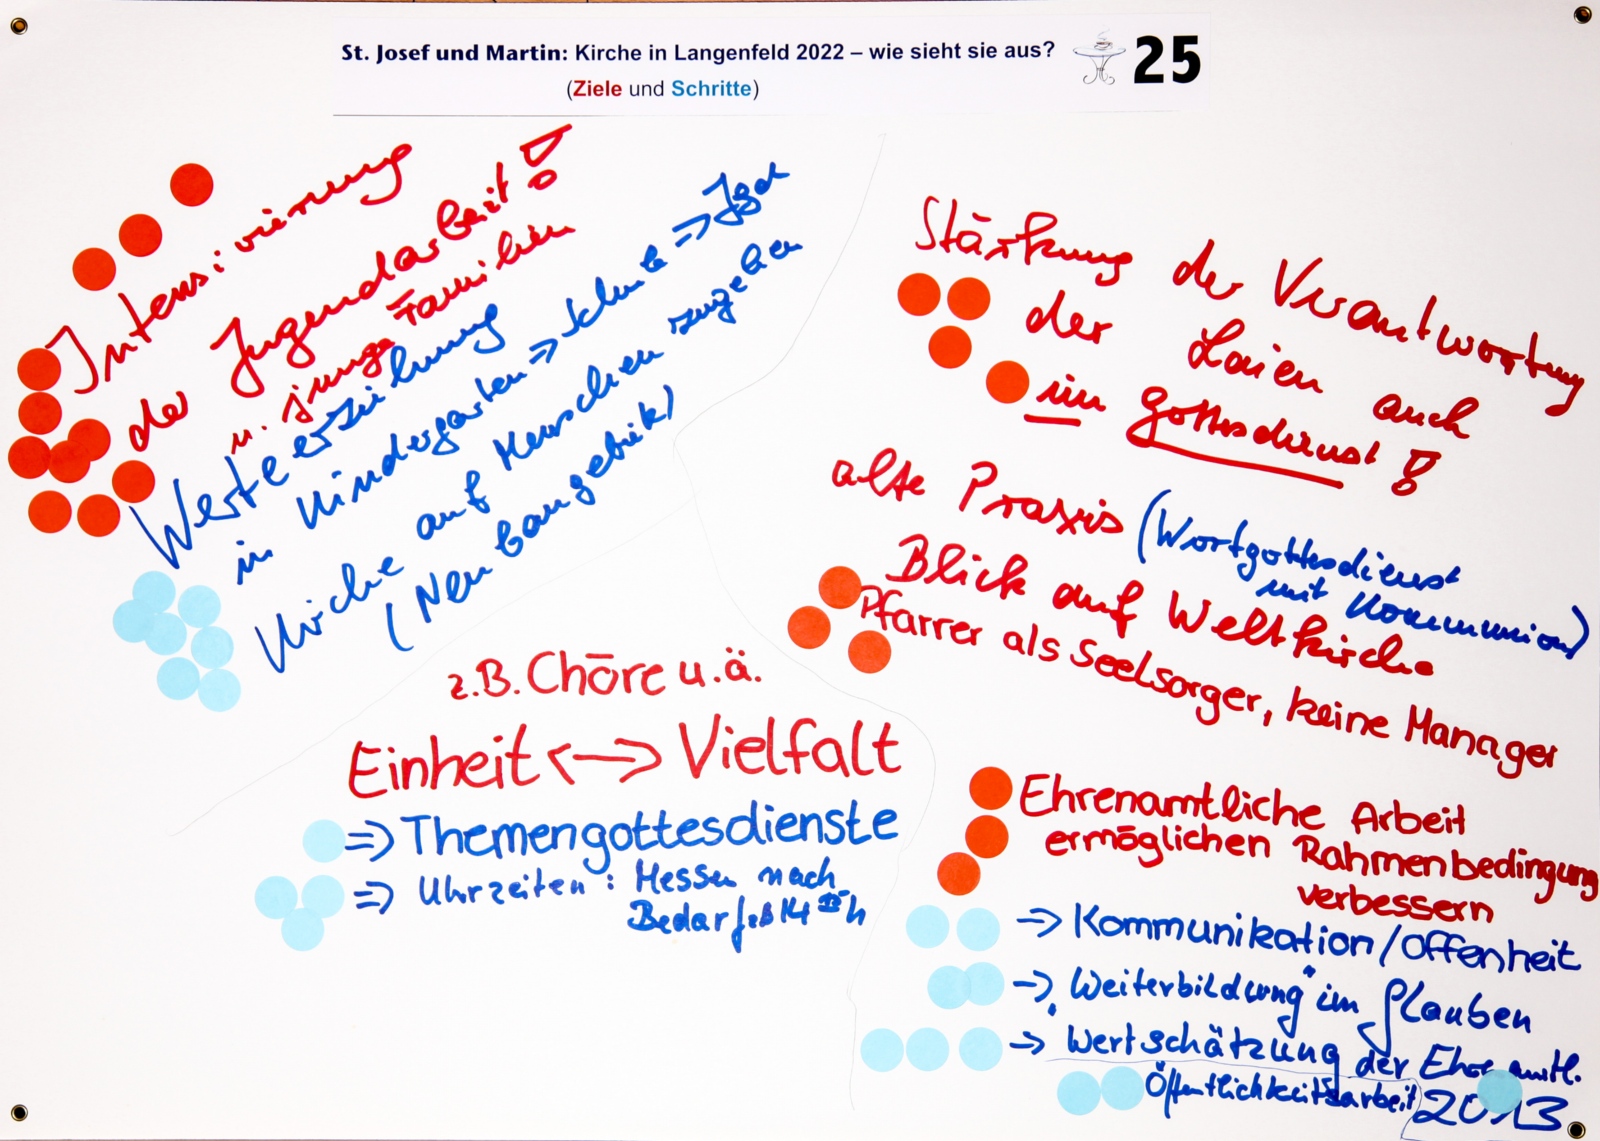 St. Josef und Martin: Kirche in Langenfeld 2022 – wie sieht sie aus?
(Ziele und Schritte)
25
Intensivierung
der Jugendarbeit!
u. junge Familien
Werteerziehung
in Kindergarten ⇒ Schule ⇒ Jgd
Kirche auf Menschen zugehen
(Neubaugebiet)
z.B. Chöre u.ä.
Einheit <-> Vielfalt
⇒ Themengottesdienste
⇒ Uhrzeiten: Messen nach
Bedarf
Stärkung der Verantwortung
der Laien auch
im Gottesdienst!
alte Praxis (Wortgottesdienst
mit Kommunion)
Blick auf Weltkirche
Pfarrer als Seelsorger, keine Manager
Ehrenamtliche Arbeit
ermöglichen Rahmenbedingung
verbessern
→ Kommunikation/Offenheit
→ „Weiterbildung" im Glauben
→ Wertschätzung der Ehrenamtl.
Öffentlichkeitsarbeit
2013